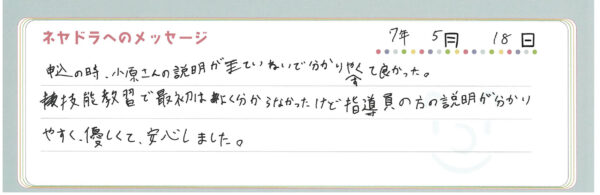 ネヤドラへのメッセージ
7年 5月 18日
申込の時、小原さんの説明がていねいで分かりやすくて良かった。
技能教習で最初は よく分からなかったけど指導員の方の説明が分かり
やすく、優しくて、安心しました。